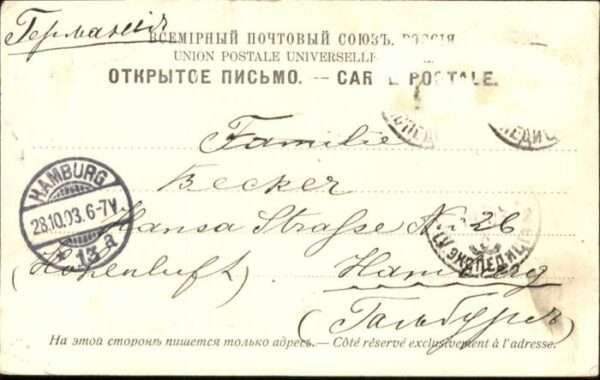 Германія
ВСЕМІРНЫЙ ПОЧТОВЫЙ СОЮЗЪ. РОССІЯ
UNION POSTALE UNIVERSELLE
ОТКРЫТОЕ ПИСЬМО. — CARTE POSTALE.
Familie
Becker
Hansa Strasse No 26
(Hohenluft) Hamburg
(Гамбургъ
HAMBURG
28.10.03. 6-7V.
* 13 a
ЭКСПЕДИЦ
На этой сторонѣ пишется только адресъ. — Côté réservé exclusivement à l'adresse.